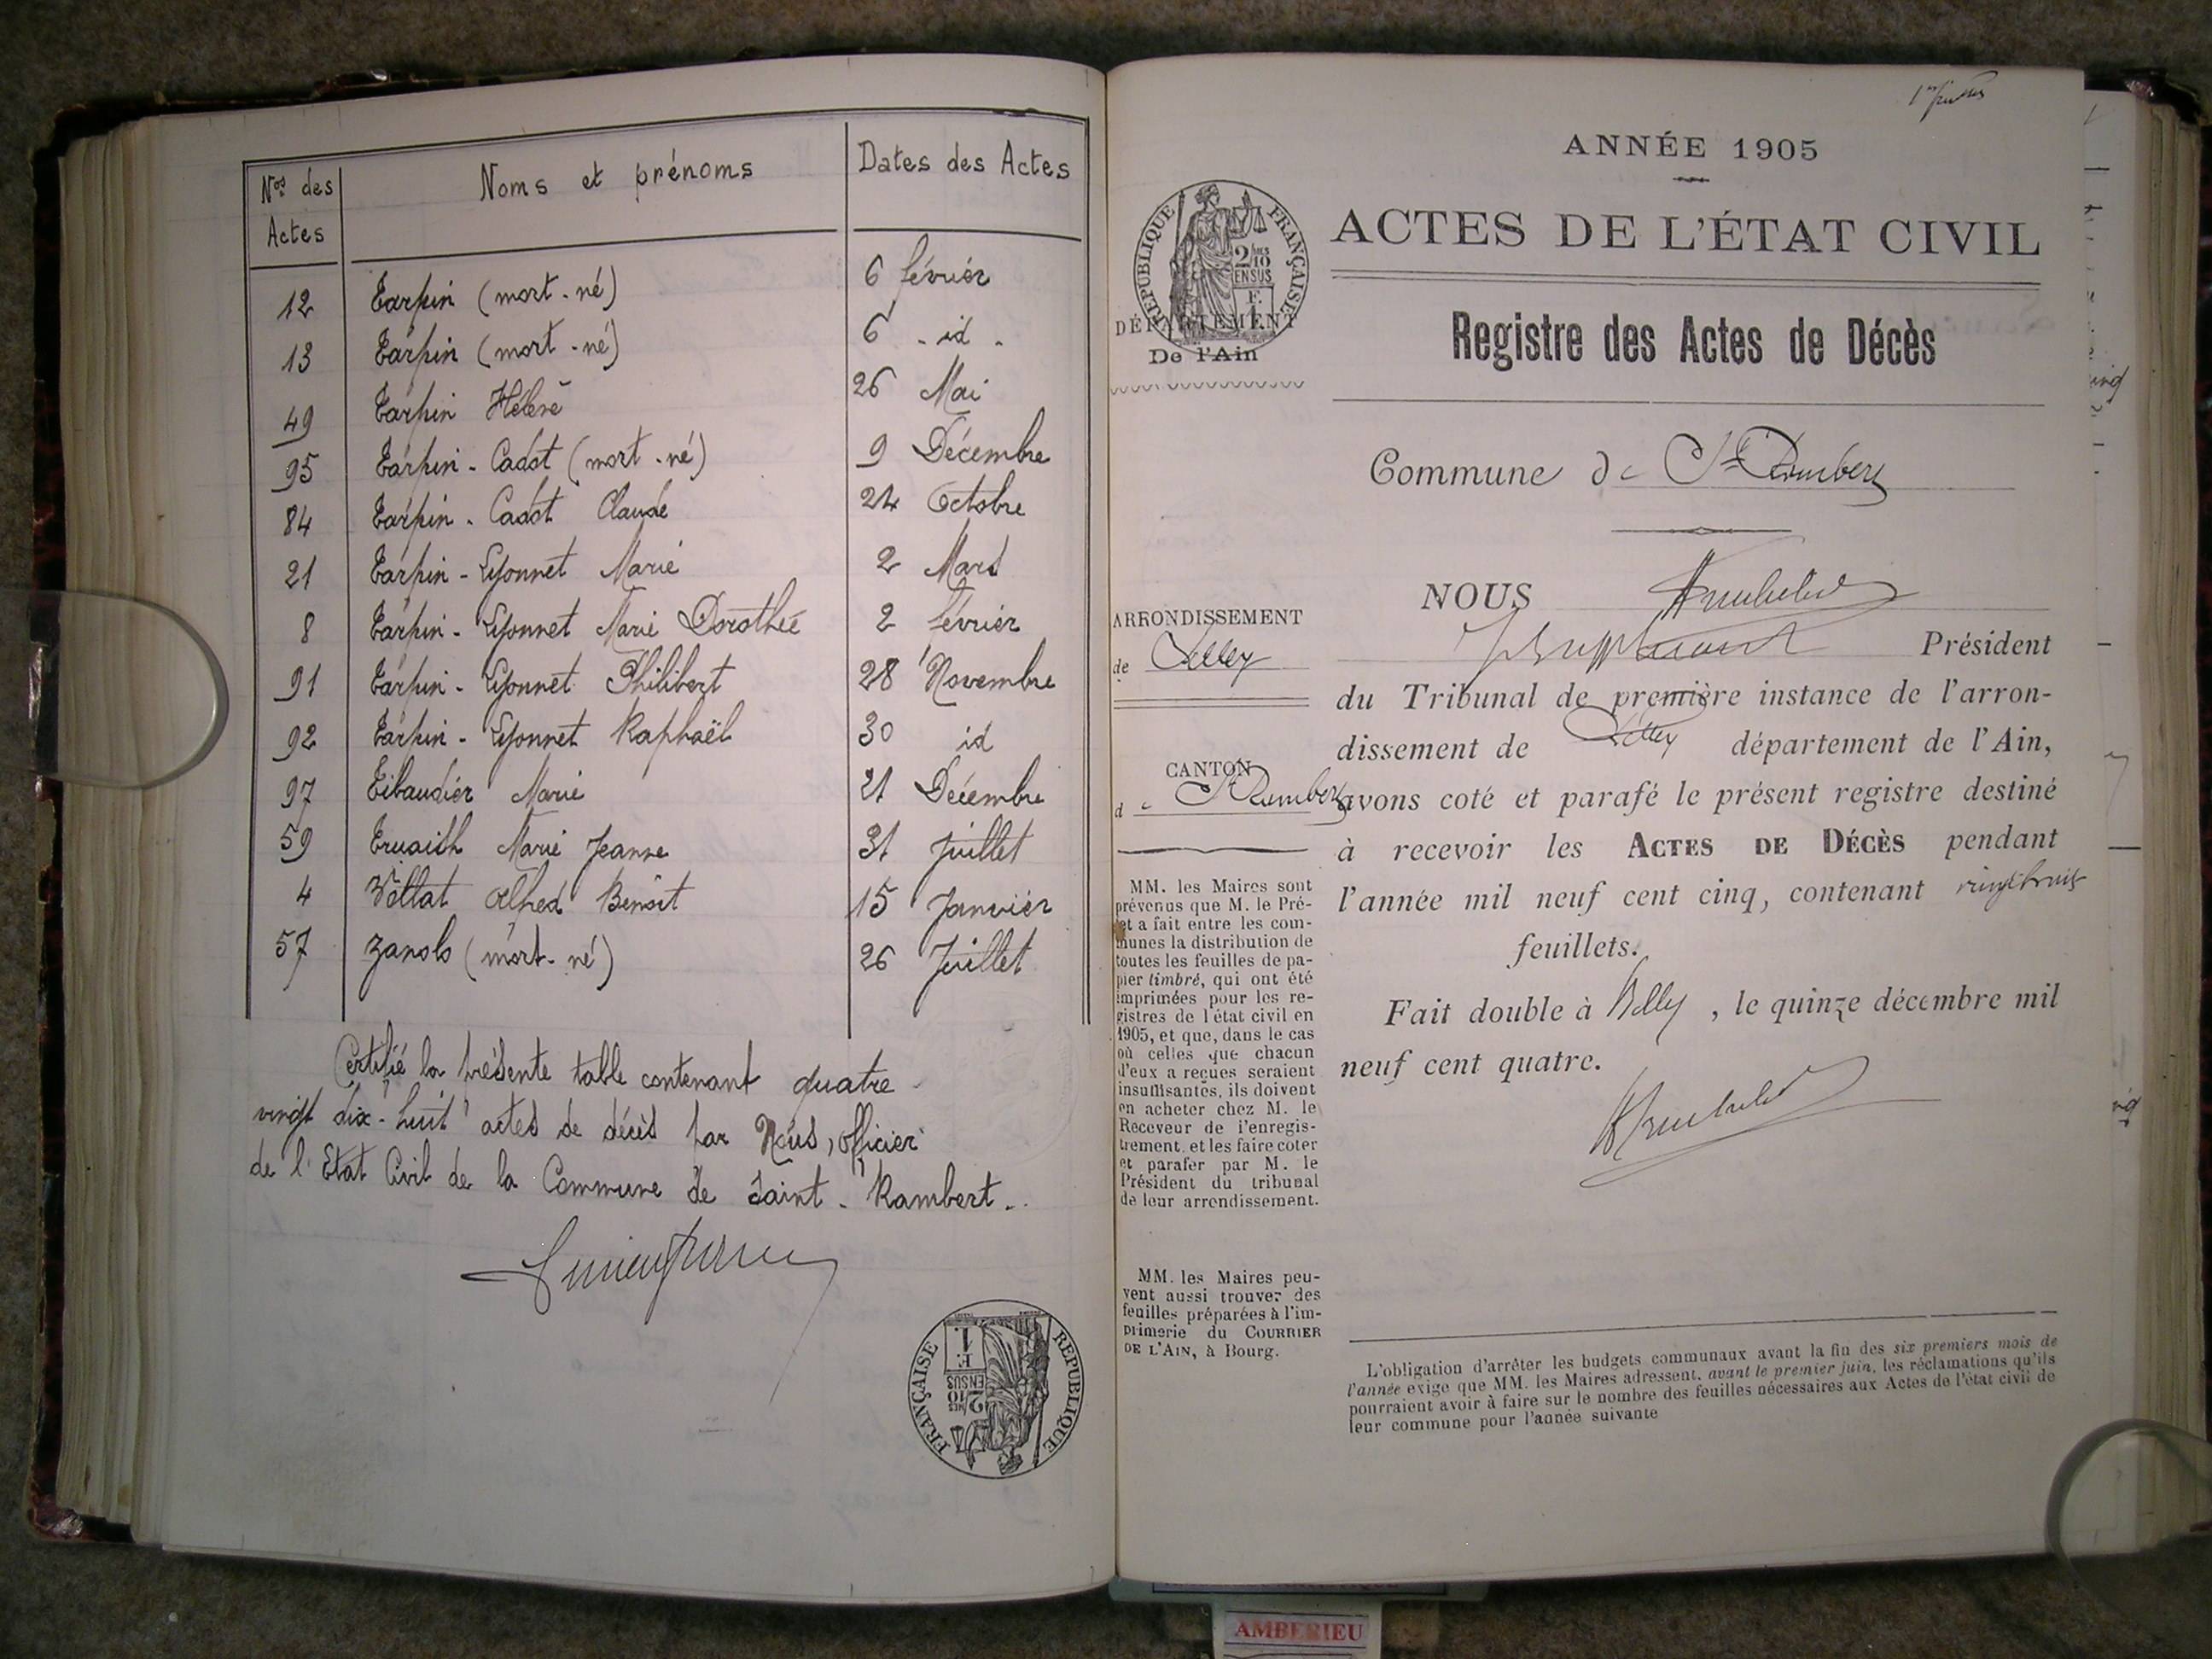 Nos des Actes
Noms et prénoms
Dates des Actes
12 Tarpin (mort-né) 6 février
13 Tarpin (mort-né) 6 - id -
49 Tarpin Hélène 26 Mai
95 Tarpin-Cadot (mort-né) 9 Décembre
84 Tarpin-Cadot Claude 24 Octobre
21 Tarpin-Lyonnet Marie 2 Mars
8 Tarpin-Lyonnet Marie Dorothée 2 février
91 Tarpin-Lyonnet Philibert 28 Novembre
92 Tarpin-Lyonnet Raphaël 30 id
97 Tibaudier Marie 21 Décembre
59 Marie Jeanne 31 Juillet
4 Benoit 15 Janvier
57 Zanolo (mort-né) 26 Juillet
Certifié la présente table contenant quatre
vingt dix-huit actes de décès par Nous, officier
de l'Etat Civil de la Commune de Saint-Rambert.
RÉPUBLIQUE FRANÇAISE
2/10 EN SUS
1 F.
ANNÉE 1905
ACTES DE L'ÉTAT CIVIL
RÉPUBLIQUE FRANÇAISE
2/10 EN SUS
DÉPARTEMENT
De l'Ain
Registre des Actes de Décès
Commune de St Rambert
ARRONDISSEMENT
de Belley
CANTON
de St Rambert
MM. les Maires sont
prévenus que M. le Pré-
et a fait entre les com-
munes la distribution de
toutes les feuilles de pa-
pier timbré, qui ont été
imprimées pour les re-
gistres de l'état civil en
1905, et que, dans le cas
où celles que chacun
d'eux a reçues seraient
insuffisantes, ils doivent
en acheter chez M. le
Receveur de l'enregis-
trement, et les faire coter
et parafer par M. le
Président du tribunal
de leur arrondissement.
MM. les Maires peu-
vent aussi trouver des
feuilles préparées à l'im-
primerie du COURRIER
DE L'AIN, à Bourg.
NOUS
Président
du Tribunal de première instance de l'arron-
dissement de Belley département de l'Ain,
avons coté et parafé le présent registre destiné
à recevoir les ACTES DE DÉCÈS pendant
l'année mil neuf cent cinq, contenant vingt huit
feuillets.
Fait double à Belley, le quinze décembre mil
neuf cent quatre.
L'obligation d'arrêter les budgets communaux avant la fin des six premiers mois de
l'année exige que MM. les Maires adressent, avant le premier juin, les réclamations qu'ils
pourraient avoir à faire sur le nombre des feuilles nécessaires aux Actes de l'état civil de
leur commune pour l'année suivante
AMBERIEU